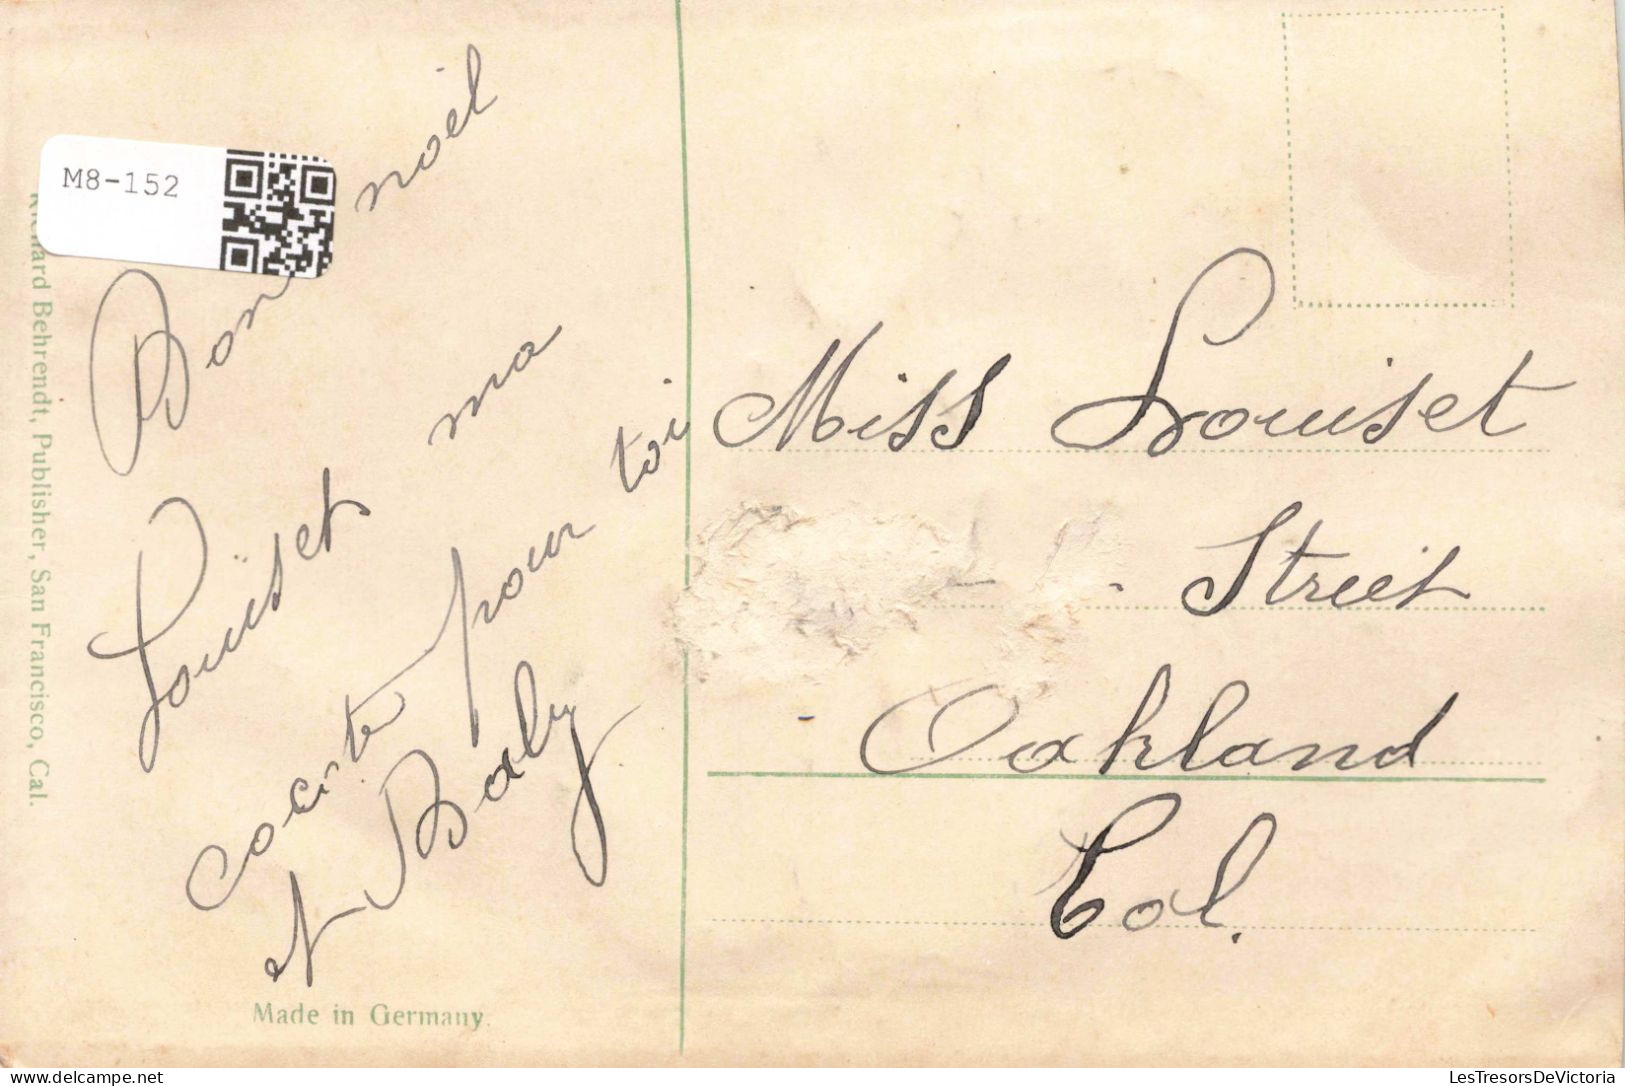 M8-152
Bon noël
Louïset ma
cocote pour toi
et Baby
Richard Behrendt, Publisher, San Francisco, Cal.
Made in Germany.
Miss Louiset
Street
Oakland
Cal.
LesTresorsDeVictoria